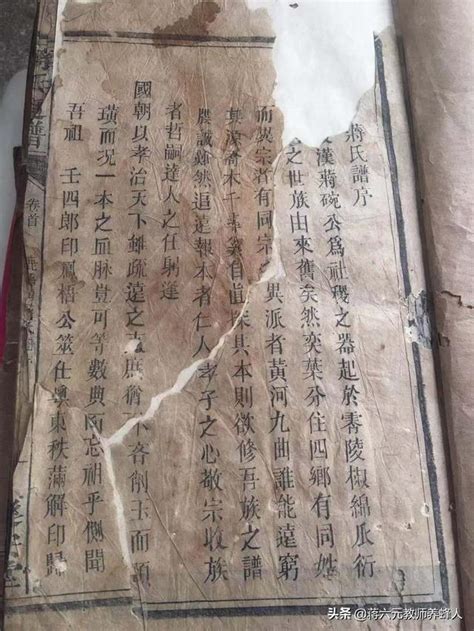 蔣氏譜序
漢蔣琬公爲社稷之器起於零陵椒綿瓜衍
之世族由來矣然奕葉分住四鄉有同姓
而異宗者有同宗異派者黃河九曲誰能遠窮
漢喬木二自其本則欲修吾族之譜
誠雖然追遠報本者仁人孝子之心敬宗收族
者哲嗣達人之任躬逢
國朝以孝治天下雖疏遠之庶猶不吝削玉而頒
璜而況一本之血脉豈可等數典而忘祖乎側聞
吾祖 壬四郎印鳳梧公筮仕粵東秩滿解印歸
譜
卷首
头条 @蒋六元教师养蜂人